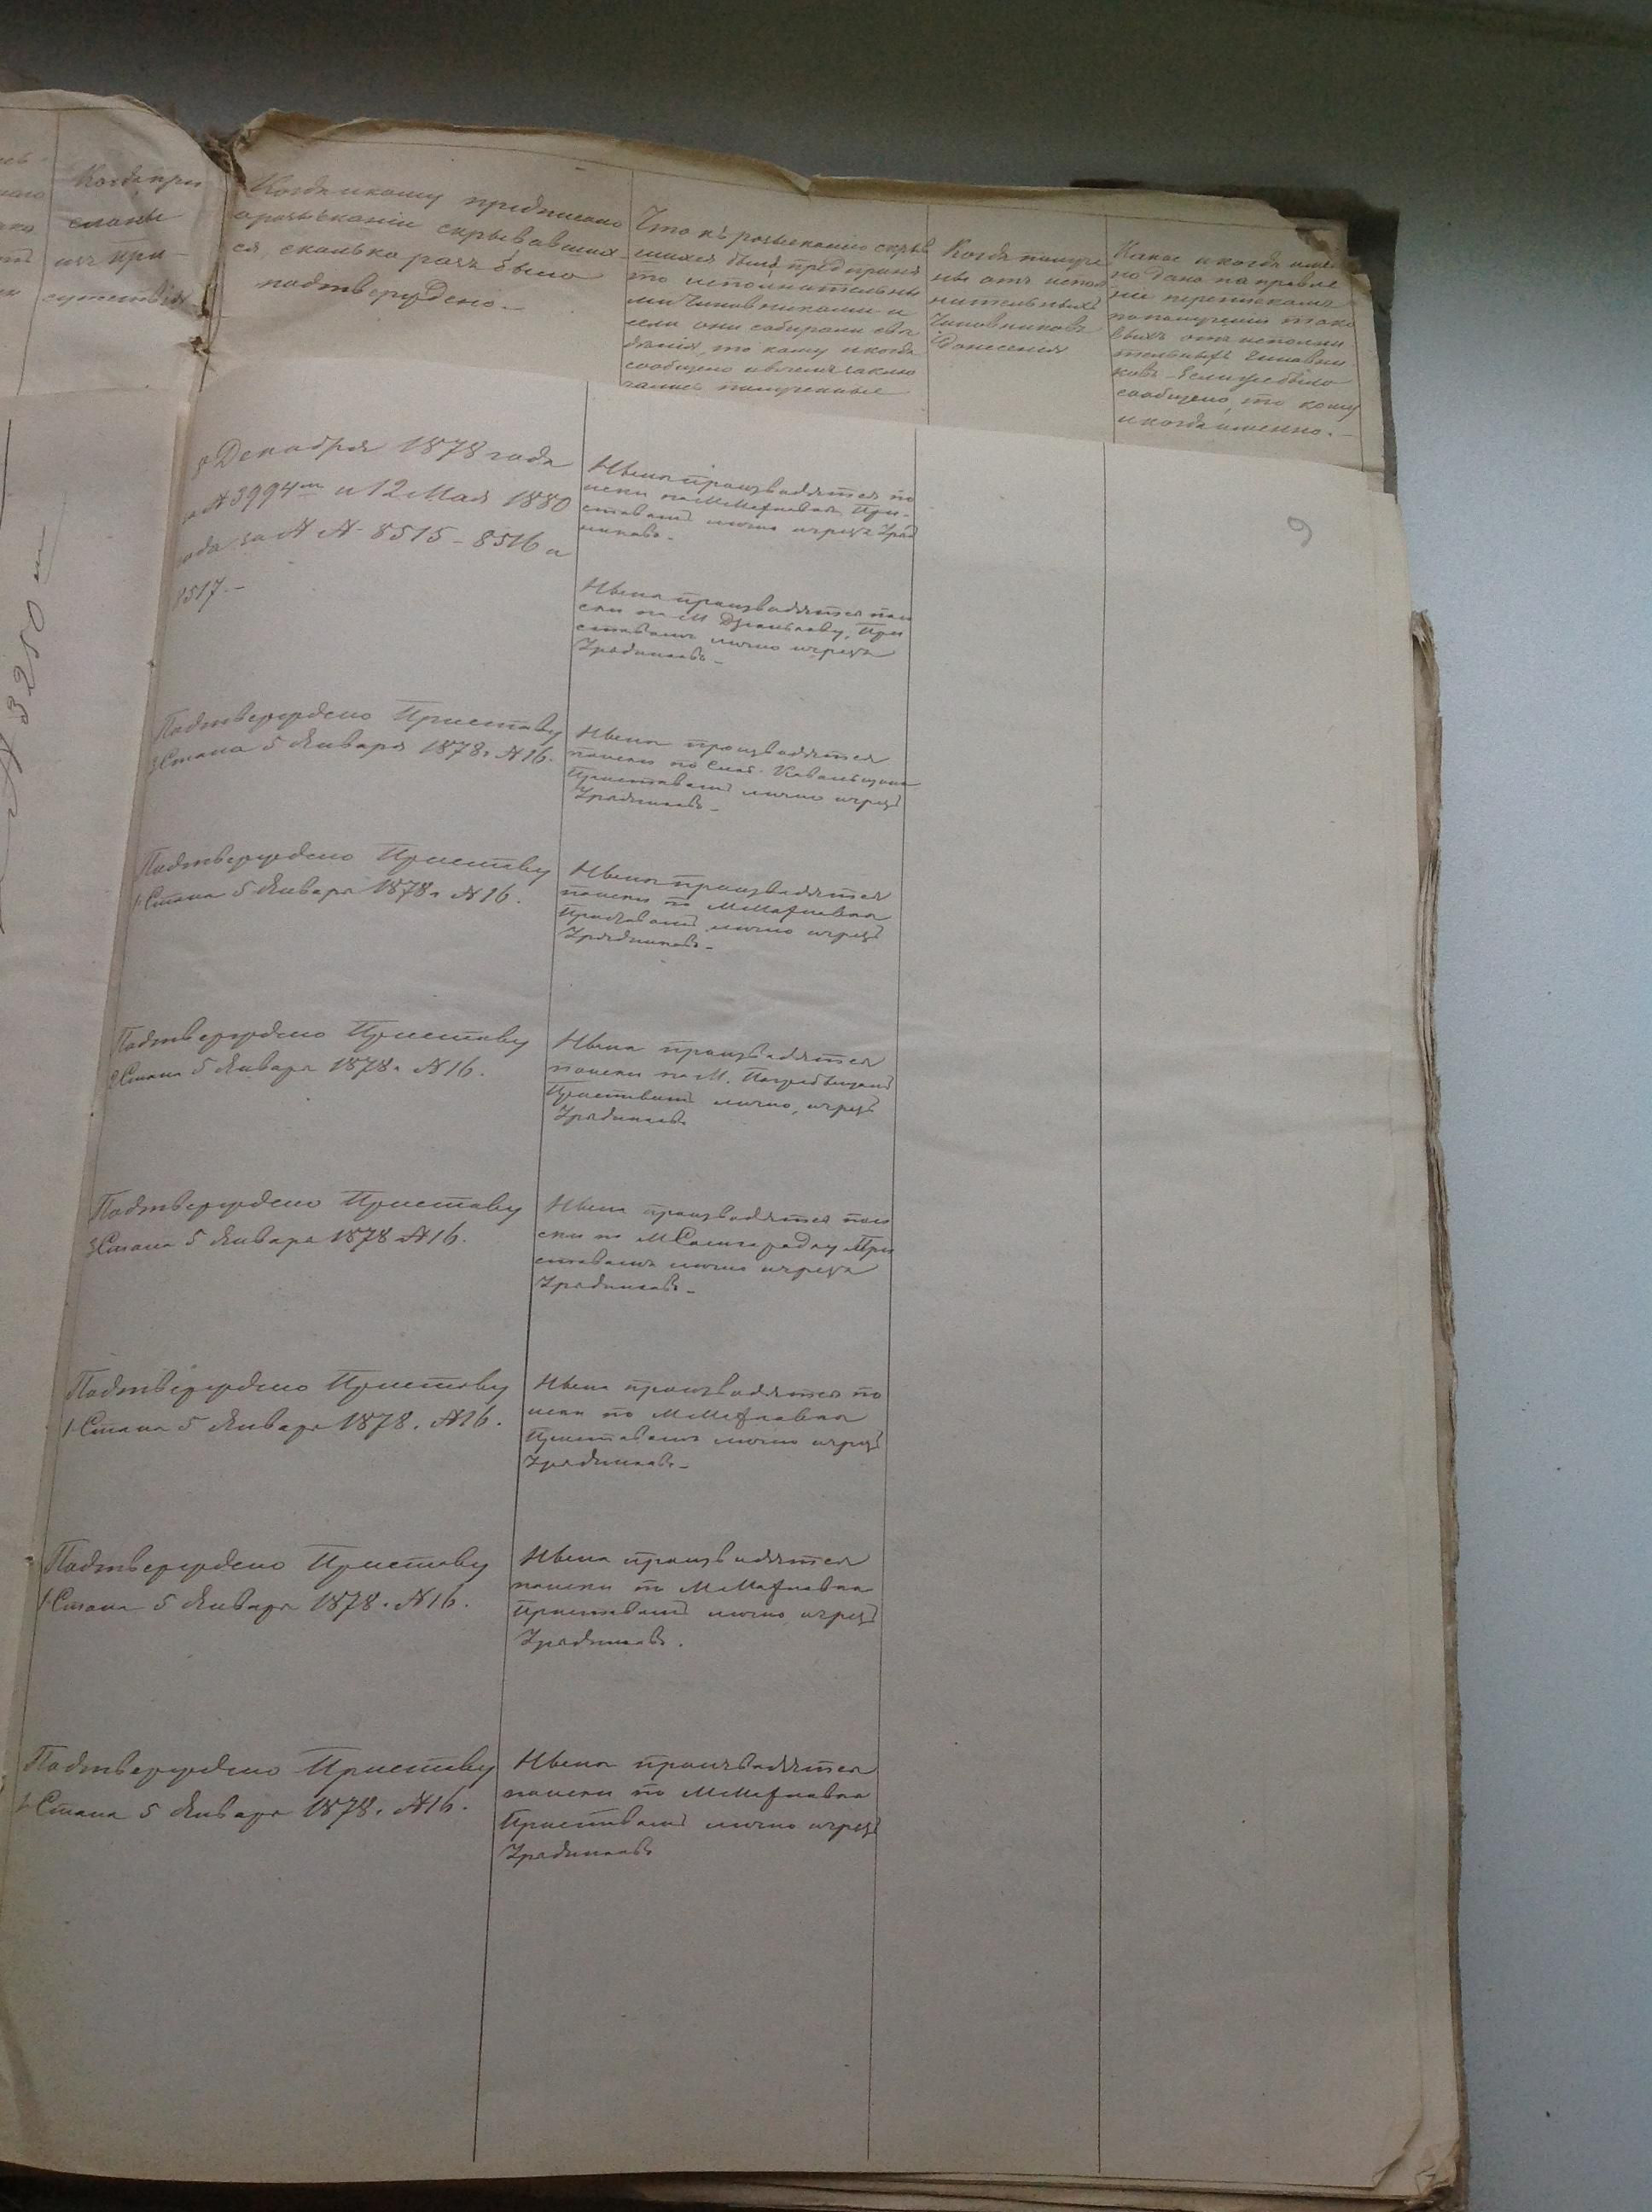 Когда при
сланы
ихъ при-
сутствія
Когда и кому предписано
о розысканіи скрывавших-
ся, сколько разъ было
подтверждено.-
Что къ розысканію скрыв
шихся было предприня
то исполнительны
ми Чиновниками и
если они собирали свѣ
дѣнія, то кому и когда
сообщено и въ чемъ заклю
чались полученные
Когда получе
ны отъ испол
нительныхъ
Чиновниковъ
донесенія
Какое и когда имен
но дано направле
ніе перепискамъ
по полученіи тако
выхъ отъ исполни
тельныхъ Чиновни
ковъ. Если же было
сообщено, то кому
и когда именно.-
9
№ 3250
Декабря 1878 года
за № 3994 и 12 Мая 1880
года за №№ 8515 - 8516 и
8517.-
Нынѣ производятся по
иски по М Махновкѣ При-
ставомъ лично и чрезъ Уряд
никовъ.-
Нынѣ производятся пои
ски по М Дзюнькову, При
ставомъ лично и чрезъ
Урядниковъ.-
Подтверждено Приставу
3 Стана 5 Января 1878 г №16.
Нынѣ производятся
поиски по Слоб.
Приставомъ лично и чрезъ
Урядниковъ.-
Подтверждено Приставу
1 Стана 5 Января 1878 г №16.
Нынѣ производятся
поиски по М Махновкѣ
Приставомъ лично и чрезъ
Урядниковъ.-
Подтверждено Приставу
Стана 5 Января 1878 г №16.
Нынѣ производятся
поиски по М. Погребищамъ
Приставомъ лично, и чрезъ
Урядниковъ
Подтверждено Приставу
3 Стана 5 Января 1878 №16.
Нынѣ производятся пои
ски по М Самгородку При
ставомъ лично и чрезъ
Урядниковъ.-
Подтверждено Приставу
1 Стана 5 Января 1878. №16.
Нынѣ производятся по
иски по М Махновкѣ
Приставомъ лично и чрезъ
Урядниковъ.-
Подтверждено Приставу
1 Стана 5 Января 1878. №16.
Нынѣ производятся
поиски по М Махновкѣ
Приставомъ лично, и чрезъ
Урядниковъ.
Подтверждено Приставу
1 Стана 5 Января 1878. №16.
Нынѣ производятся
поиски по М Махновкѣ
Приставомъ лично и чрезъ
Урядниковъ